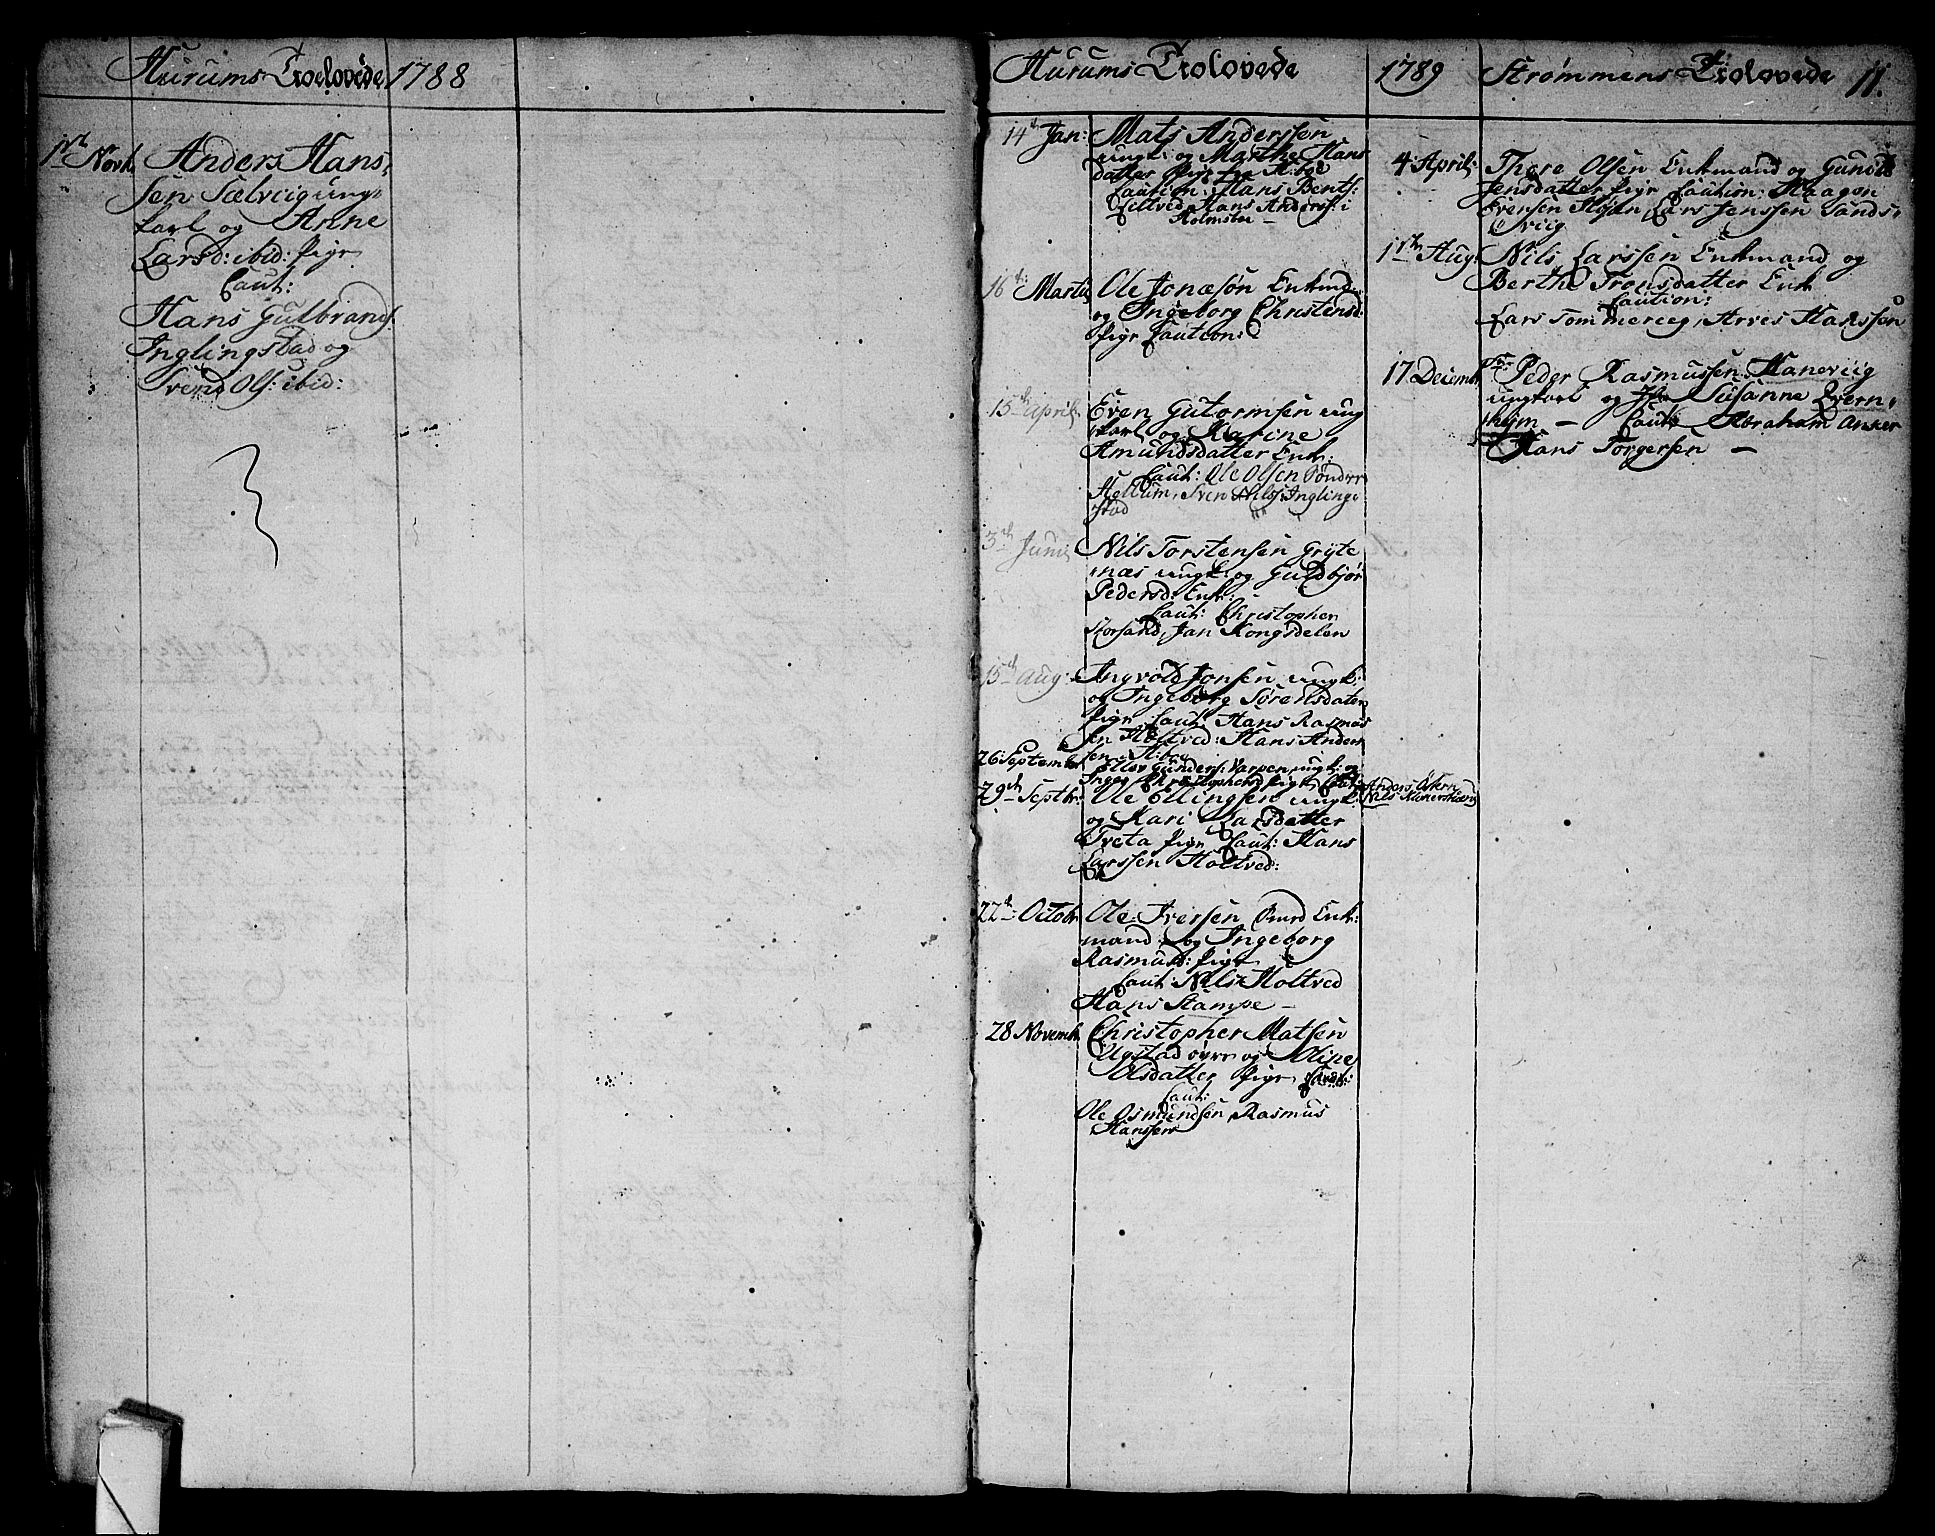 Hurums Troelovede 1788
1ste Novb. Anders Hans-
sen Sælviig ung-
karl og Anne
Larsd: ibid: Pige
Caut:
Hans Gulbrands.
Inglingstad og
Svend Ols: ibid:
Hurums Trolovede 1789
14de Jan: Mats Anderssen
ungk: og Marthe Hans
datter Pige fra
Caution: Hans Bents:
Hans Anders: i
Holmsbu –
16d: Martii Ole Jonæsøn Enkmd.
og Ingeborg Christensd:
Pige Caution:
15de April Even Gutormsen ung
karl og Karine
Amundsdatter Enk:
Caut: Ole Olsen Søndre
Sven Nils: Inglings
stad
3de Junii Nils Torstensen Gryte
næs ungk. og Guldbjør
Pedersd: Enk:
Caut: Christopher
Storsand, Jan Kongsdelen
15de Aug. Ingvold Jonsen ungk:
og Ingeborg Sørensdater
Pige Caut: Hans Rasmus
sen Holtved: Hans Ander
sen
26 Septembr Gunders: Varpen ungk: og
Pige Caut: Anders Østern
Nils
29de Septbr: Ole Ellingsen ungk:
og Kari Larsdatter
Tveta Pige Caut: Hans
Larssen Holtved:
22de Octobr Ole Iversen Enk-
mand og Ingeborg
Rasmusd: Pige
Caut: Nils Holtved
Hans Stampe –
28 Novembr Christopher Matsen
Ugstad øvre og Oline
Olsdatter Pige
Caut:
Ole Osmundsen, Rasmus
Hanssen
Strømmens Trolovede 11.
4 April: Thore Olsen Enkmand og Gunild
Jensdatter Pige Caution: Haagen
Evensen Lars Jenssen Sands-
viig
11te Aug: Nils Larssen Enkmand og
Berthe Tronsdatter Enk
Caution:
Lars Tommereeg, Arves Hanssen
17 Decembr Peder Rasmussen Haneviig
ungkarl og Susanne Qvern-
Caut: Abraham Anker
Hans Torgersen –